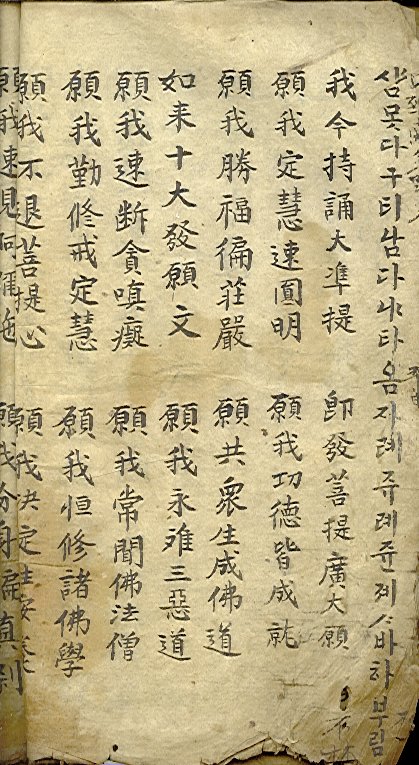 삼못다구티남다냐타옴자례쥬례쥰졔ᄉᆞ바하부림
我今持誦大凖提 卽發菩提廣大願
願我定慧速圓明 願我功德皆成就
願我勝福徧莊嚴 願共衆生成佛道
如来十大發願文 願我永难三惡道
願我速断貪嗔癡 願我常聞佛法僧
願我勤修戒定慧 願我恒修諸佛學
願我不退菩提心 願我决定生
願我速見阿彌 願我分身徧